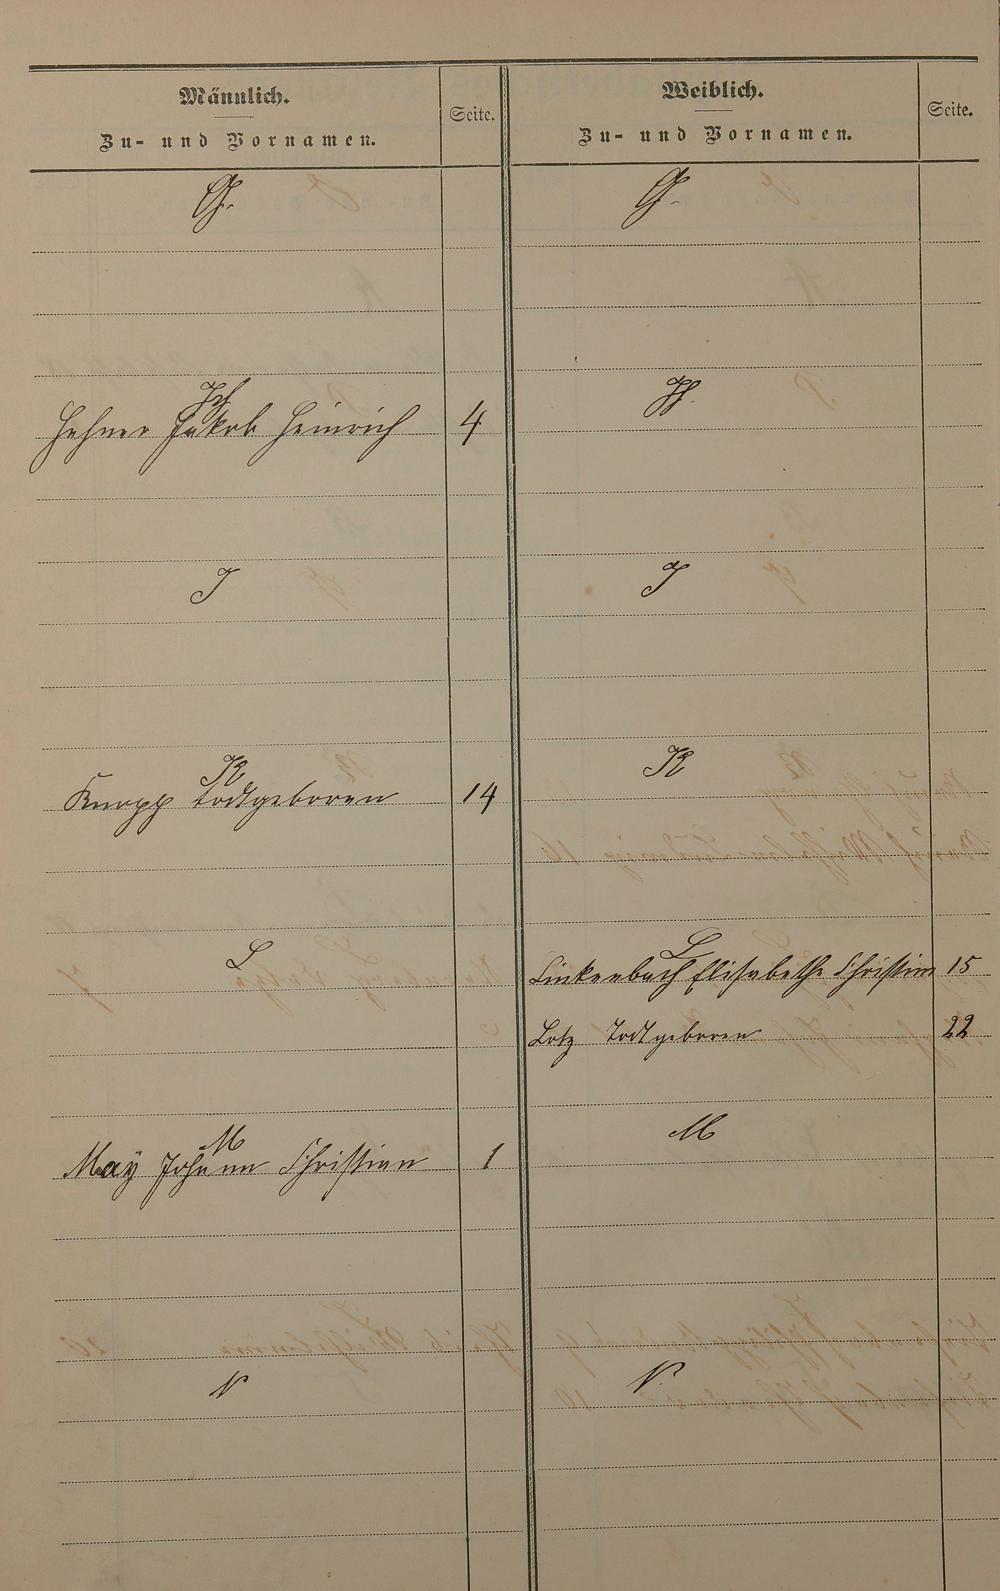 Männlich.
Zu- und Vornamen.
Seite.
G.
H
Hehner Jakob Heinrich 4
J
K
Knopp todtgeboren 14
L
M
Maÿ Johann Christian 1
N
Weiblich.
Zu- und Vornamen.
Seite.
G.
H.
J
K
L
Linkenbach Elisabethe Christine 15
Lotz Todtgeboren 22
M
N.